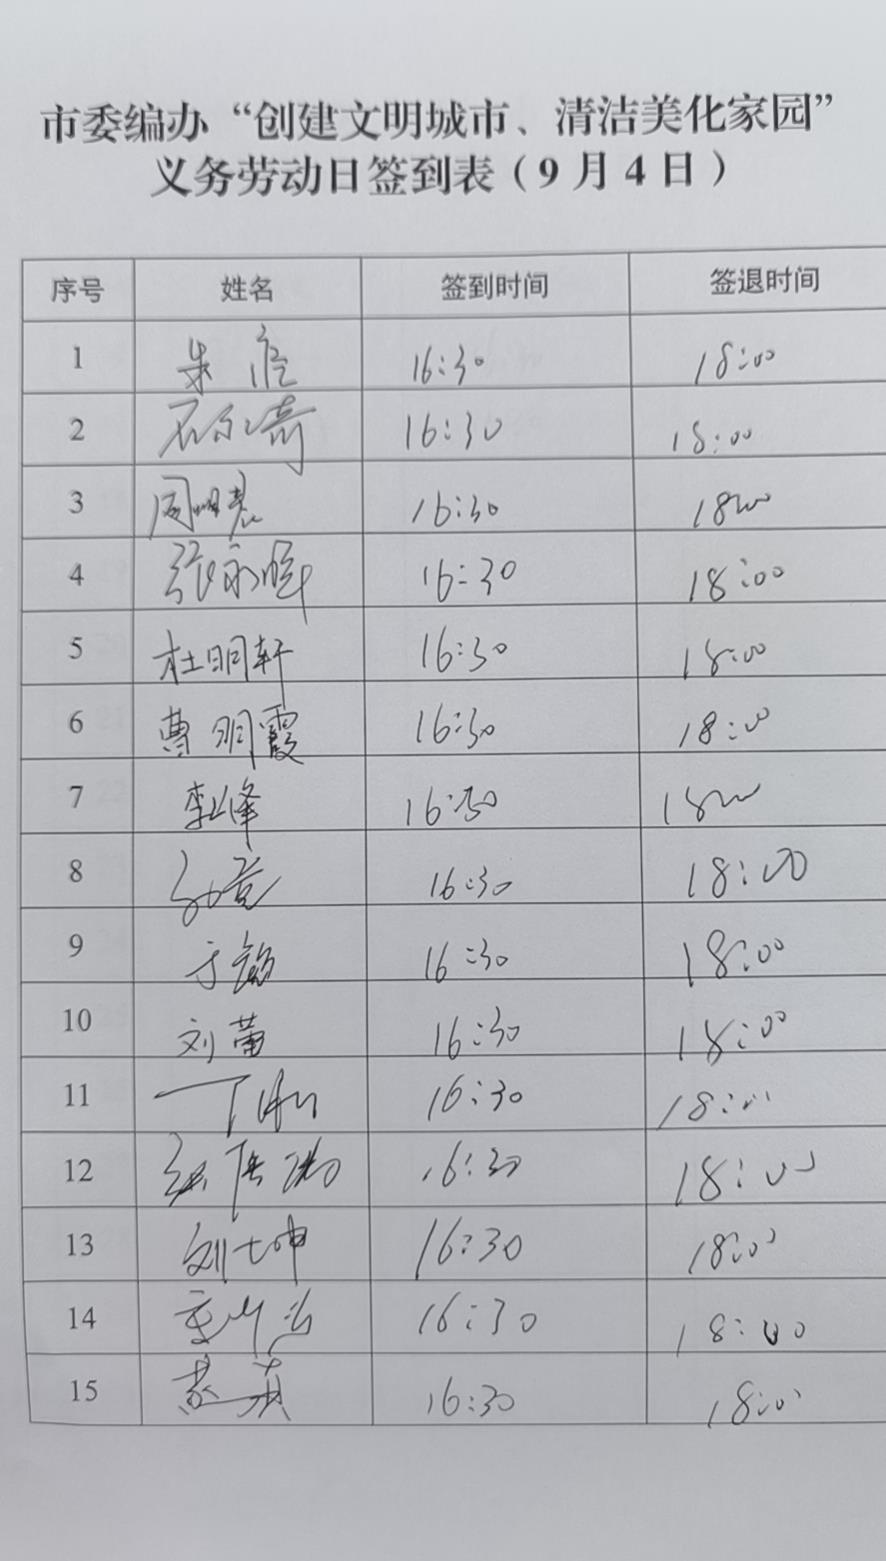 市委编办“创建文明城市、清洁美化家园”
义务劳动日签到表（9月4日）
序号 姓名 签到时间 签退时间
1 朱 16:30 18:00
2 16:30 18:00
3 周明 16:30 18:00
4 张永 16:30 18:00
5 杜明轩 16:30 18:00
6 曹明霞 16:30 18:00
7 李峰 16:30 18:00
8 16:30 18:00
9 于 16:30 18:00
10 刘蕾 16:30 18:00
11 丁 16:30 18:00
12 16:30 18:00
13 刘 坤 16:30 18:00
14 16:30 18:00
15 16:30 18:00